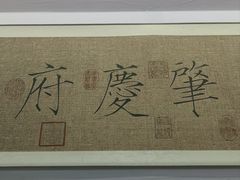 肇慶府